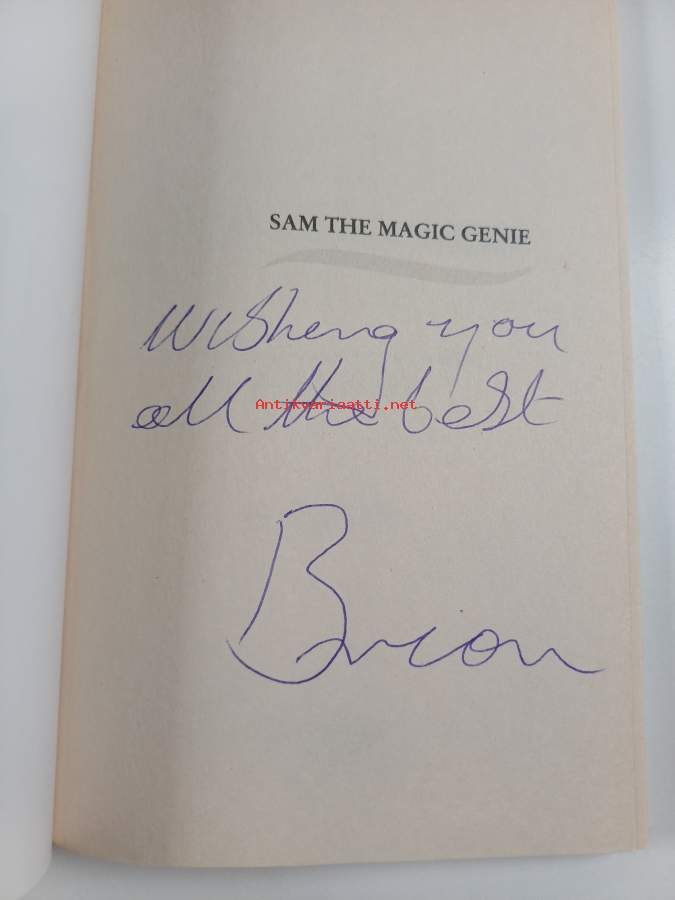 SAM THE MAGIC GENIE
Wishing you
all the best
Antikvariaatti.net
Brian